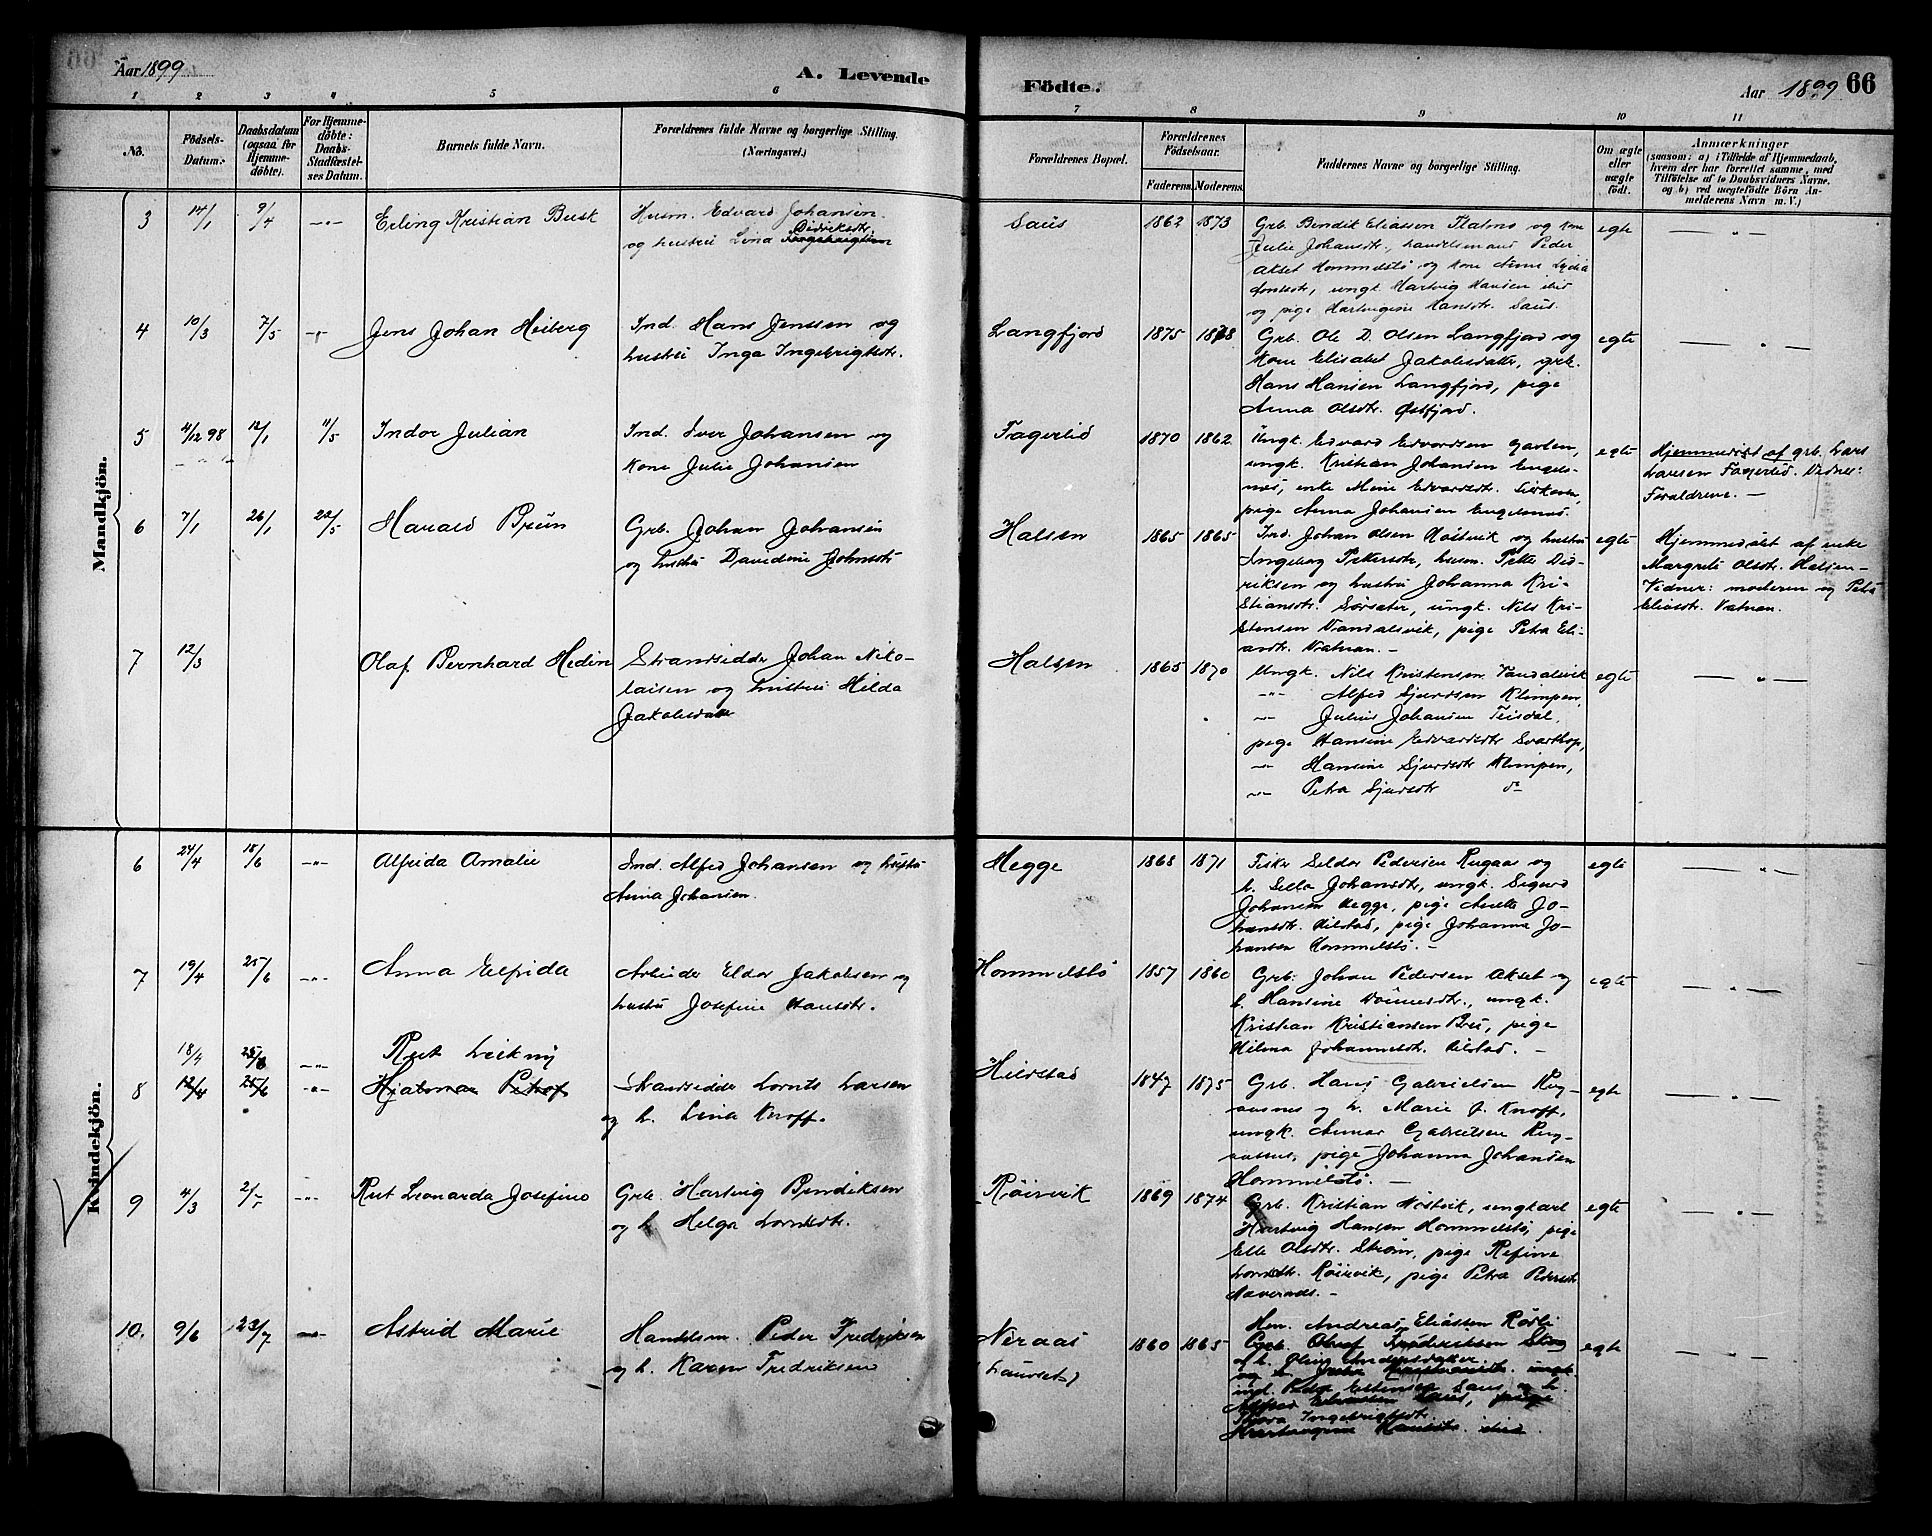 Aar 1899
A. Levende
Födte.
Aar 1899 66
1 2 3 4 5 6 7 8 9 10 11
No.
Födsels-
Datum.
Daabsdatum
(ogsaa for
Hjemme-
döbte).
For Hjemme-
döbte:
Daabs-
Stadfæstel-
ses Datum.
Barnets fulde Navn.
Forældrenes fulde Navne og borgerlige Stilling.
(Næringsvei.)
Forældrenes Bopæl.
Forældrenes
Födselsaar.
Faderens. Moderens.
Faddernes Navne og borgerlige Stilling.
Om ægte
eller
uægte
födt.
Anmærkninger
(saasom: a) i Tilfælde af Hjemmedaab,
hvem der har forrettet samme, med
Tilföielse af to Daabsvidners Navne,
og b) ved uægtefödte Börn An-
melderens Navn m. V.)
Mandkjön.
3 14/1 9/4 -"- Erling Kristian Busk
Husm. Edvard Johansen
Didriksdtr.
og hustru Lina Ingebrigtsen
Saus 1862 1873
Grb. Bendik Eliassen Flatmo og kone
Julie Johansdtr., handelsmand Peder
Akset Hommelstø og kone Anne Lydia
ungk. Hartvig Hansen ibid
og pige Hartvigine Hansdtr. Saus.
egte — " —
4 10/3 7/5 -"- Jens Johan Heiberg
Ind. Hans Jenssen og
hustru Inga Ingebrigtsdtr.
Langfjord 1875 1878
Grb. Ole D. Olsen Langfjord og
kone Elisabet Jakobsdatter, grb.
Hans Hansen Langfjord, pige
Anna Olsdtr. Østfjord.
egte — " —
5 4/12 98 12/1 11/5 Indor Julian
Ind. Iver Johansen og
kone Julie Johansen
Fagerlid 1870 1862
Ungk. Edvard Edvardsen
ungk. Kristian Johansen Engels-
nes, enke Mine Edvardsdtr.
pige Anna Johansen Engelsnes.
egte
Hjemmedøbt af grb. Lars
Larsen Fagerlid. Vidner:
Forældrene. —
6 7/1 26/1 22/5 Harald Bruun
Grb. Johan Johansen
og hustru Davidine Johnsdtr
Halsen 1865 1865
Ind. Johan Olsen Høstvik og hustru
Ingeborg Petersdtr, husm. Petter Did-
riksen og hustru Johanna Kri-
stiansdtr. Sørsæter, ungk. Nils Kri-
stensen Vandalsvik, pige Petra Eli-
asdtr. Vatnan. —
egte
Hjemmedøbt af enke
Margrete Olsdtr. Halsen —
Vidner: moderen og Petra
Eliasdtr. Vatnan.
7 12/3 Olaf Bernhard Hedin
Strandsidder Johan Niko-
laisen og hustru Hilda
Jakobsdatter
Halsen 1865 1870
Ungk. Nils Kristensen Vandalsvik
-"- Alfred Sjursen Klimpen,
-"- Julius Johansen Teisdal,
pige Hansine Edvardsdtr Svarthop,
-"- Hansine Sjursdtr Klimpen,
-"- Petra Sjursdtr do
egte — " —
Kvindekjön.
6 24/4 18/6 -"- Alfrida Amalie
Ind. Alfred Johansen og hustru
Anna Johansen.
Hegge 1868 1871
Fisker Peder Pedersen Rugaas og
h. Johansdtr, ungk. Sigurd
Johansen Hegge, pige Anette Jo-
hansdtr. Hilstad, pige Johanna Jo-
hansen Hommelstø. —
egte — " —
7 19/4 25/6 -"- Anna Elfrida
Arbeider Eldor Jakobsen og
hustru Josefine Hansdtr.
Hommelstø 1857 1860
Grb. Johan Pedersen Akset og
h. Hansine ungk.
Kristian Kristiansen Bru, pige
Hilma Johannesdtr. Hilstad. —
egte — " —
18/4 25/6 -"- Rut Leikny
8 12/4 25/6 -"- Hjalmar Petrof
Strandsidder Lornts Larsen
og h. Lina Knoff.
Hilstad 1847 1875
Grb. Hans Gabrielsen Rug-
aasnes og h. Marie J. Knoff,
ungk. Annar Gabrielsen Rug-
aasnes, pige Johanna Johansen
Hommelstø. —
egte — " —
9 4/3 2/7 -"- Rut Leonarda Josefine
Grb. Hartvig Bendiksen
og h. Helga Lorntsdtr.
Røirvik 1869 1874
Grb. Kristian Høstvik, ungkarl
Hartvig Hansen Hommelstø, pige
Elle Olsdtr. Strøm, pige Refine
Lorntsdtr. Røirvik, pige Petra Pedersdtr
egte — " —
10. 9/6 23/7 -"- Astrid Marie
Handelsm. Peder Fredriksen
og h. Karen Fredriksen
Neraas
(Laurset)
1860 1865
Hm. Andreas Eliassen Røsli
Grb. Oluf Frederiksen
og h. Oline Andersdatter
ungk.
Peder Estensen Saus, og h.
Alfred Saus, pige
Thora Ingebrigtsdtr
Hartvigine Hansdtr. ibid.
egte — " —